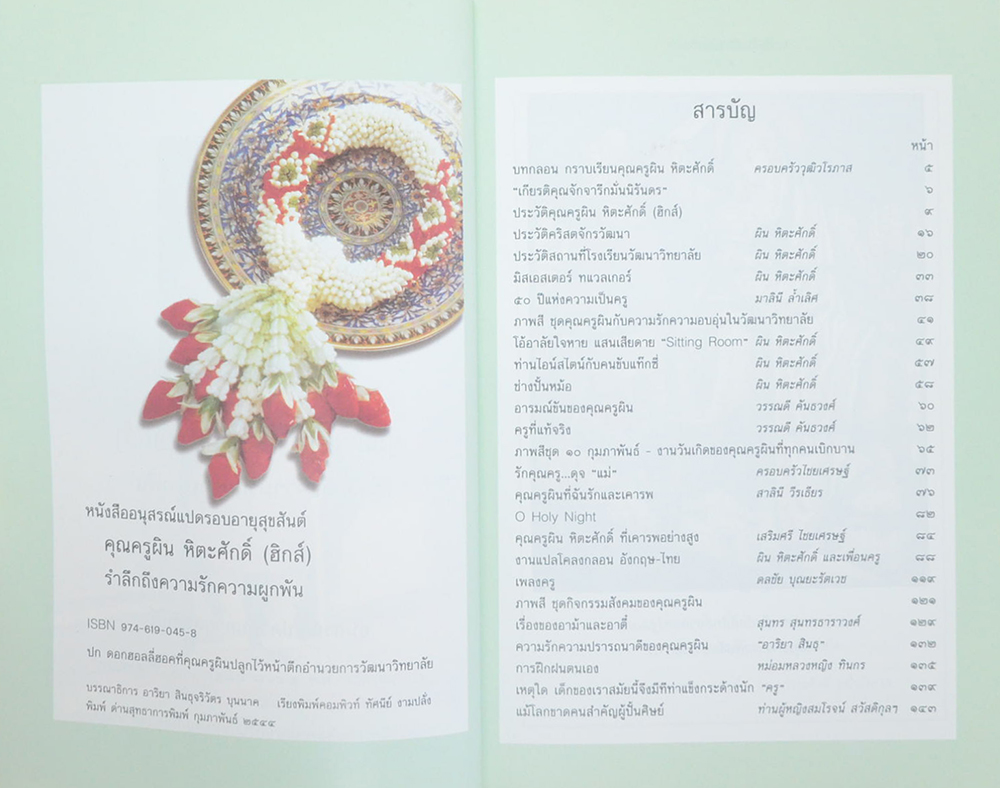 หนังสืออนุสรณ์แปดรอบอายุสุขสันต์
คุณครูผิน หิตะศักดิ์ (ฮิกส์)
รำลึกถึงความรักความผูกพัน
ISBN 974-619-045-8
ปก ดอกฮอลลี่ฮอคที่คุณครูผินปลูกไว้หน้าตึกอำนวยการวัฒนาวิทยาลัย
บรรณาธิการ อาริยา สินธุจริวัตร บุนนาค เรียงพิมพ์คอมพิวท์ ทัศนีย์ งามปลั่ง
พิมพ์ ด่านสุทธาการพิมพ์ กุมภาพันธ์ ๒๕๔๔
สารบัญ
หน้า
บทกลอน กราบเรียนคุณครูผิน หิตะศักดิ์ ครอบครัววุฒิวโรภาส ๕
"เกียรติคุณจักจารึกมั่นนิรันดร" ๖
ประวัติคุณครูผิน หิตะศักดิ์ (ฮิกส์) ๙
ประวัติคริสตจักรวัฒนา ผิน หิตะศักดิ์ ๑๖
ประวัติสถานที่โรงเรียนวัฒนาวิทยาลัย ผิน หิตะศักดิ์ ๒๐
มิสเอสเตอร์ ทแวลเกอร์ ผิน หิตะศักดิ์ ๓๓
๕๐ ปีแห่งความเป็นครู มาลินี ล้ำเลิศ ๓๘
ภาพสี ชุดคุณครูผินกับความรักความอบอุ่นในวัฒนาวิทยาลัย ๔๑
โอ้อาลัยใจหาย แสนเสียดาย "Sitting Room" ผิน หิตะศักดิ์ ๔๙
ท่านไอน์สไตน์กับคนขับแท๊กซี่ ผิน หิตะศักดิ์ ๕๗
ช่างปั้นหม้อ ผิน หิตะศักดิ์ ๕๘
อารมณ์ขันของคุณครูผิน วรรณดี คันธวงศ์ ๖๐
ครูที่แท้จริง วรรณดี คันธวงศ์ ๖๒
ภาพสีชุด ๑๐ กุมภาพันธ์ - งานวันเกิดของคุณครูผินที่ทุกคนเบิกบาน ๖๕
รักคุณครู...ดุจ "แม่" ครอบครัวไชยเศรษฐ์ ๗๓
คุณครูผินที่ฉันรักและเคารพ สาลินี วีรเธียร ๗๖
O Holy Night ๘๒
คุณครูผิน หิตะศักดิ์ ที่เคารพอย่างสูง เสริมศรี ไชยเศรษฐ์ ๘๔
งานแปลโคลงกลอน อังกฤษ-ไทย ผิน หิตะศักดิ์ และเพื่อนครู ๘๘
เพลงครู ดลชัย บุณยะรัตเวช ๑๑๙
ภาพสี ชุดกิจกรรมสังคมของคุณครูผิน ๑๒๑
เรื่องของอาม้าและอาตี๋ สุนทร สุนทรธาราวงศ์ ๑๒๙
ความรักความปรารถนาดีของคุณครูผิน "อาริยา สินธุ" ๑๓๒
การฝึกฝนตนเอง หม่อมหลวงหญิง ทินกร ๑๓๕
เหตุใด เด็กของเราสมัยนี้จึงมีทีท่าแข็งกระด้างนัก "ครู" ๑๓๙
แม้โลกขาดคนสำคัญผู้ปั้นศิษย์ ท่านผู้หญิงสมโรจน์ สวัสดิกุลฯ ๑๔๓